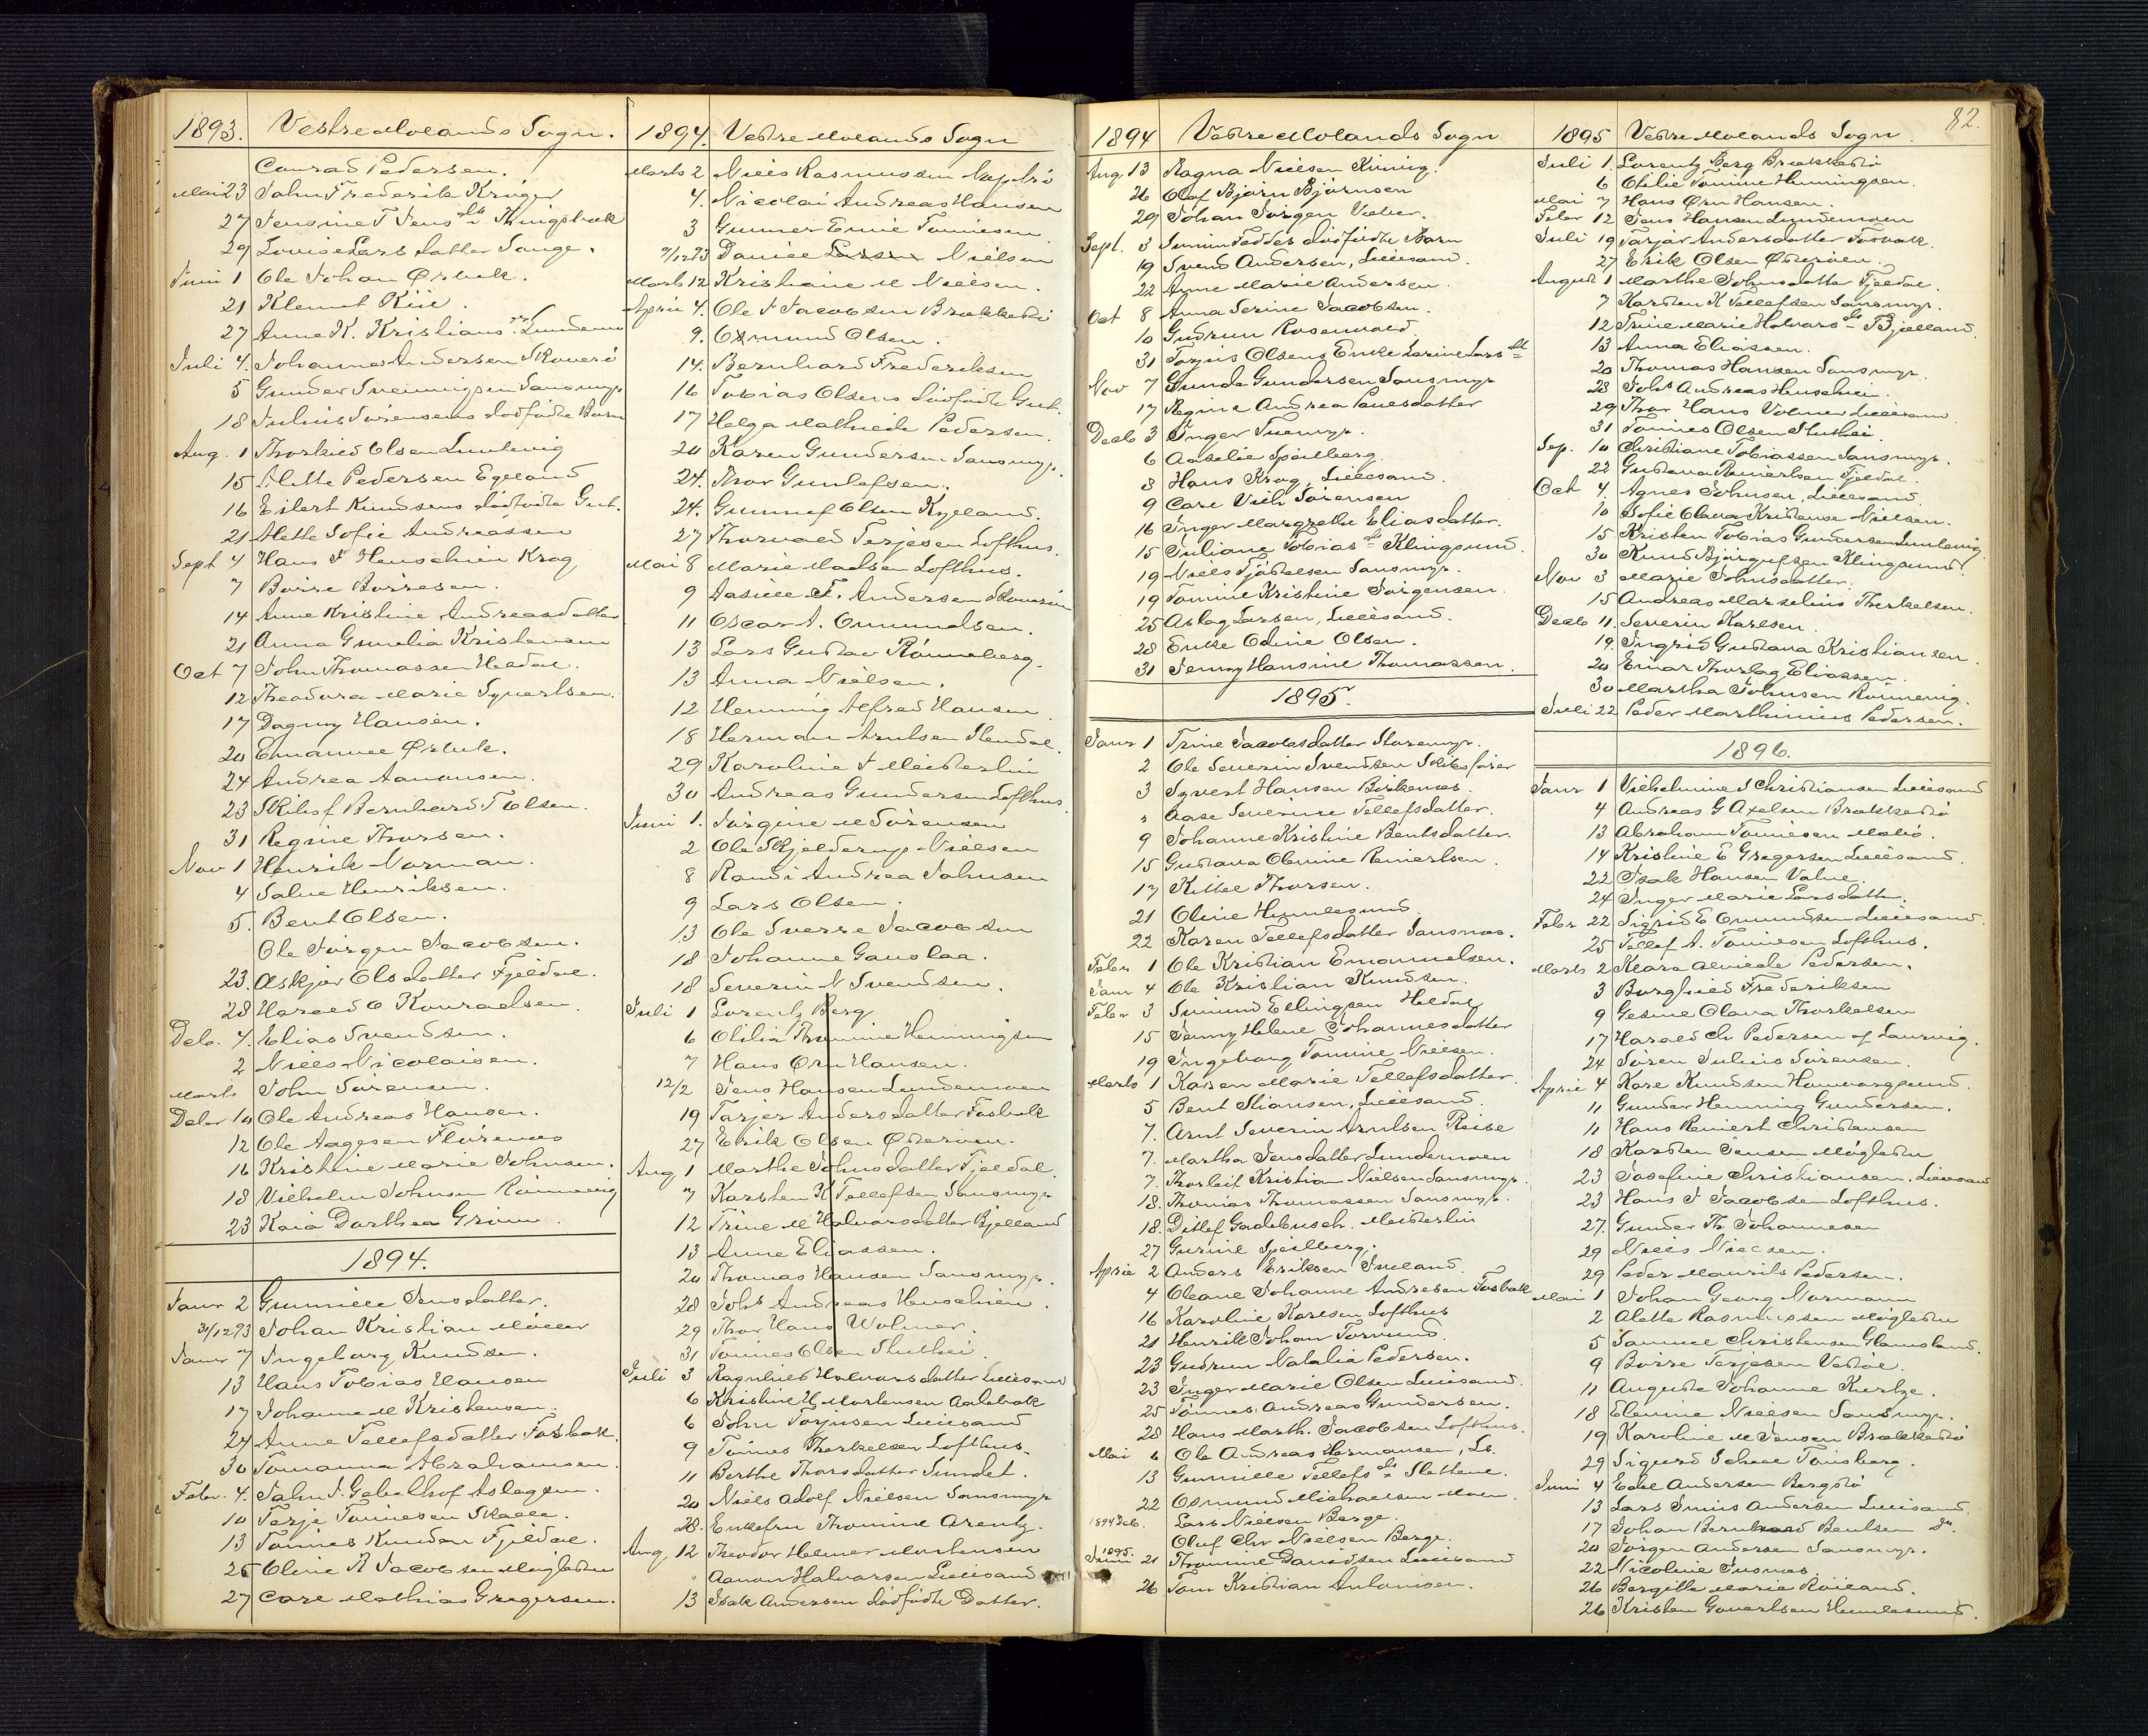 82.
1893. Vestre Molands Sogn.
Conrad Pedersen.
Mai 23 John Frederik Krüger
27 Jensine T Jens dtr
29 Louise Larsdatter Tange.
Juni 1 Ole Johan Ørbæk.
21 Klemet Riie.
27 Anne K. Kristians dtr Lundemo
Juli 4. Johannes Andersen Skauerö
5 Gunder Sveinugsen Sansmyr
18 Julius Sörensens dödfödte Barn
Aug. 1 Thorkild Olsen Lundevig
15 Alette Pedersen Egeland
16 Eilert Knudsens dödfödte Gut.
21 Alette Sofie Andreassen
Sept 4 Hans F Henschien Krog
7 Börre Börresen.
14 Anne Kristine Andreasdatter
21 Anna Gunelia Kristensen
Oct 7 John Thomassen Heldal.
12 Theodora Marie Syvertsen.
17 Dagny Hansen.
20 Emanuel Ørbæk.
24 Andrea Aanonsen.
23 Skibsf Bernhard T Olsen.
31 Regine Thorsen.
Nov 1 Henrik Norman.
4 Salve Henriksen.
5. Bent Olsen.
Ole Jörgen Jacobsen.
23. Askjer Olsdatter Fjeldal.
28 Harald O Konradsen
Deb. 4. Elias Svendsen.
2 Niels Nicolaisen.
Marts John Sörensen.
Debr 10 Ole Andreas Hansen.
12 Ole Aagesen Flörenes
16 Kristine Marie Johnsen.
18 Vilhelm Johnsen Rönnevig
23 Kaia Dorthea Grimm
1894.
Janr 2 Gunnille Jensdatter.
31/12 93 Johan Kristian Möller
Janr 7 Ingeborg Knudsen.
13 Hans Tobias Hansen
17 Johanne M Kristensen.
27 Anne Tellefsdatter Fosbæk.
30 Tomanna Abrahamsen.
Febr. 4. John F. Gebelhof Aslagsen.
10 Terje Tönnesen Skalle.
13 Tönnes Knudsen Fjeldal.
25 Oline R Jacobsen Möglestu
27 Carl Mathias Gregersen.
1894. Vestre Molands Sogn
Marts 2 Niels Rasmussen
4. Nicolai Andreas Hansen
3 Gunner Emil Tönnesen
9/12 93 Daniel Larsen Nielsen
Marts 12 Kristiane M Nielsen.
April 4. Ole F Jacobsen Brækkestö
9. Osmund Olsen.
14. Bernhard Frederiksen
16 Tobias Olsens dödfödte Gut.
17 Helga Mathilde Pedersen.
20 Karen Gundersen Sansmyr.
24. Thor Gunlefsen.
24. Gunnuf Olsen Kjelland.
27 Thorvald Terjesen Lofthus.
Mai 8 Marie Madsen Lofthus.
9 Aasille T. Andersen Skauerön
11 Oscar A. Omundsen.
13 Lars Gustav Rönneberg.
13 Anna Nielsen.
12 Henning Alfred Hansen
18 Herman Arntsen Stendal.
29 Karoline F Meisterlin
30 Andreas Gundersen Lofthus
Juni 1. Jörgine M Sörensen
2 Ole Skjelderup Nielsen
8 Randi Andrea Johnsen
9 Lars Olsen.
13 Ole Sverre Jacobsen
18 Johanne Gauslaa.
18 Severin N Svendsen.
Juli 1 Lorentz Berg
6 Otilia Thomine Henningsen
7 Hans Ørn Hansen.
12/2 Jens Hansen Lundemoen
19 Tarjer Andersdatter Fosbæk
27 Erik Olsen Østeröen.
Aug 1 Marthe Johnsdatter Fjeldal.
7 Karsten K Tellefsen Sansmyr
12 Trine M Halvorsdatter Bjelland
13 Anne Eliassen.
20 Thomas Hansen Sansmyr.
28 Johs Andreas Henschien.
29 Thor Hans Wolmer.
31 Tönnes Olsen Sluthei.
Juli 3 Ragnhild Halvorsdatter Lillesand
6 Kristine H Mortensen Aalebæk
6 John Torjusen Lillesand
9 Tönnes Therkelsen Lofthus.
11 Berthe Thorsdatter Sundet.
20 Niels Adolf Nielsen Sansmyr
28. Enkefru Thomine Arentz.
Aug 12 Theodor Helmer Mortensen
" Aanon Halvorsen Lillesand
13 Isak Andersen dödfödte Datter.
1894 Vestre Molands Sogn
Aug 13 Ragna Nielsen Kining.
26 Olaf Björn Björnsen
29 Johan Jörgen Veber.
Sept. 3 Simin Feddes dödfödte Barn
19 Svend Andersen, Lillesand.
22 Anne Marie Andersen.
Oct 8 Anna Serine Jacobsen.
10 Gudrun Rosenvold.
31 Torjus Olsens Enke Karine Lars dtr
Nov 7 Gunda Gundersen Sansmyr
17 Regine Andrea Paulesdatter
Decb 3 Inger Tuemyr.
6 Aaselie Speilberg.
8 Hans Krog, Lillesand.
9 Carl Vilh Sörensen
16 Inger Margrethe Eliasdatter.
15 Juliane Tobias dtr Klingsund.
19 Niels Tjöstelsen Sansmyr.
19 Tomine Kristine Jörgensen.
25 Aslag Larsen, Lillesand.
28 Enke Odine Olsen.
31 Jenny Hansine Thomassen.
1895.
Janr 1 Trine Jacobsdatter Storemyr.
2 Ole Severin Svendsen Skibsförer
3 Syvert Hansen Birkenes.
" Aase Severine Tellefsdatter.
9 Johanne Kristine Bentsdatter.
15 Gustava Olevine Reinertsen.
17 Kittel Thorsen.
21 Oline Humlesund
22 Karen Tellefsdatter Sansnes.
Febr 1 Ole Kristian Emanuelsen.
Janr 4 Ole Kristian Knudsen.
Febr 3 Simund Ellingsen Heldal
15 Jenny Helene Johannesdatter
19 Ingeborg Tomine Nielsen.
Marts 1 Karen Marie Tellefsdatter.
5 Bent Stiansen, Lillesand.
7. Arnt Severin Arntsen Reise
7. Martha Jensdatter Lundemoen
7. Thorleif Kristian Nielsen Sansmyr.
18. Thomas Thomassen Sansmyr.
18. Ditlef Gadebusch. Meisterlin
27 Gurine Speilberg.
April 2 Anders Eriksen Imeland.
4 Oleane Johanne Andresen Fosbæk
16 Karoline Karlsen Lofthus
21 Henrik Johan Torvund.
23 Gudrun Natalia Pedersen.
23 Inger Marie Olsen Lillesand.
25 Tönnes Andreas Gundersen.
28 Hans Marth. Jacobsen Lofthus.
Mai 6 Ole Andreas Hermansen, Ls.
13 Gunnille Tellefs dtr Slettene.
22 Osmund Michaelsen Moen
1894 Deb. Lars Nielsen Berge.
Oluf Chr Nielsen Berge.
1895. Juni 21 Thomine Danielsen Lillesand
26 Tom Kristian Antonisen.
1895 Vestre Molands Sogn
Juli 1. Lorentz Berg Brækkestö
6 Otilie Tomine Henningsen.
Mai 7 Hans Ørn Hansen.
Febr 12 Jens Hansen Lundemoen
Juli 19 Tarjer Andersdatter Fosbæk.
27 Erik Olsen Østeröen.
August 1 Marthe Johnsdatter Fjeldal.
7 Karsten K Tellefsen Sansmyr.
12 Trine Marie Halvors dtr Bjelland
13 Anna Eliassen.
20 Thomas Hansen Sansmyr.
28 Johs Andreas Henschien.
29 Thor Hans Volmer Lillesand
31 Tönnes Olsen Sluthei.
Sep. 10 Christiane Tobiassen Sansmyr.
22 Gustava Reinertsen Fjeldal.
Oct 4. Agnes Johnsen, Lillesand
10 Sofie Olava Kristense Nielsen.
15 Kristen Tobias Gundersen Lundevig
30 Knud Björgufsen Klingsund.
Nov 3 Marie Johnsdatter.
15 Andreas Marselius Therkelsen.
Decb 11. Severin Karlsen.
19. Ingrid Gustava Kristiansen.
20 Einar Thorlag Eliassen.
30 Martha Johnsen Rönnevig.
Juli 22 Peder Marthinius Pedersen.
1896.
Janr 1 Vilhelmine S Christiansen Lillesand
4 Andreas G Axelsen Brækkestö
13 Abraham Tönnesen Malö.
14 Kristine E Gregersen Lillesand.
22 Isak Hansen Valne.
24 Inger Marie Larsdatter.
Febr 22 Sigrid E Omundsen Lillesand
25 Tellef A. Tönnesen Lofthus.
Marts 2 Klara Alvilde Pedersen.
3 Borghild Frederiksen
9 Gesine Olava Thorkelsen
17 Harald Chr Pedersen af Laurvig.
24 Sören Julius Sörensen
April 4 Kare Knudsen Humvargsund.
11 Gunder Henning Gundersen.
11 Hans Reinert Christensen
18 Karsten Jensen Möglestu
23 Josefine Christiansen. Lillesand
23 Hans F Jacobsen Lofthus.
27. Gunder Th Johannesen
29 Niels Nielsen.
29 Peder Maurits Pedersen.
Mai 1 Johan Georg Normann
2 Alette Rasmussen Möglestu
5 Samuel Christensen Glamsland.
9 Börre Terjesen Vestöl.
11 Augusta Johanne Kurtze.
18 Elevine Nielsen Sansmyr.
19 Karoline M Jensen Brækkestö
29 Sigurd Schee Tönsberg.
Juni 4 Edle Andersen Bergstö
13 Lars Smius Andersen Lillesand
17 Johan Bernhard Bentsen Do.
20 Jörgen Andersen Sansmyr.
22 Nicoline Tusnes
26 Bergitte Marie Röiland.
26 Kristen Govertsen Humlesund.